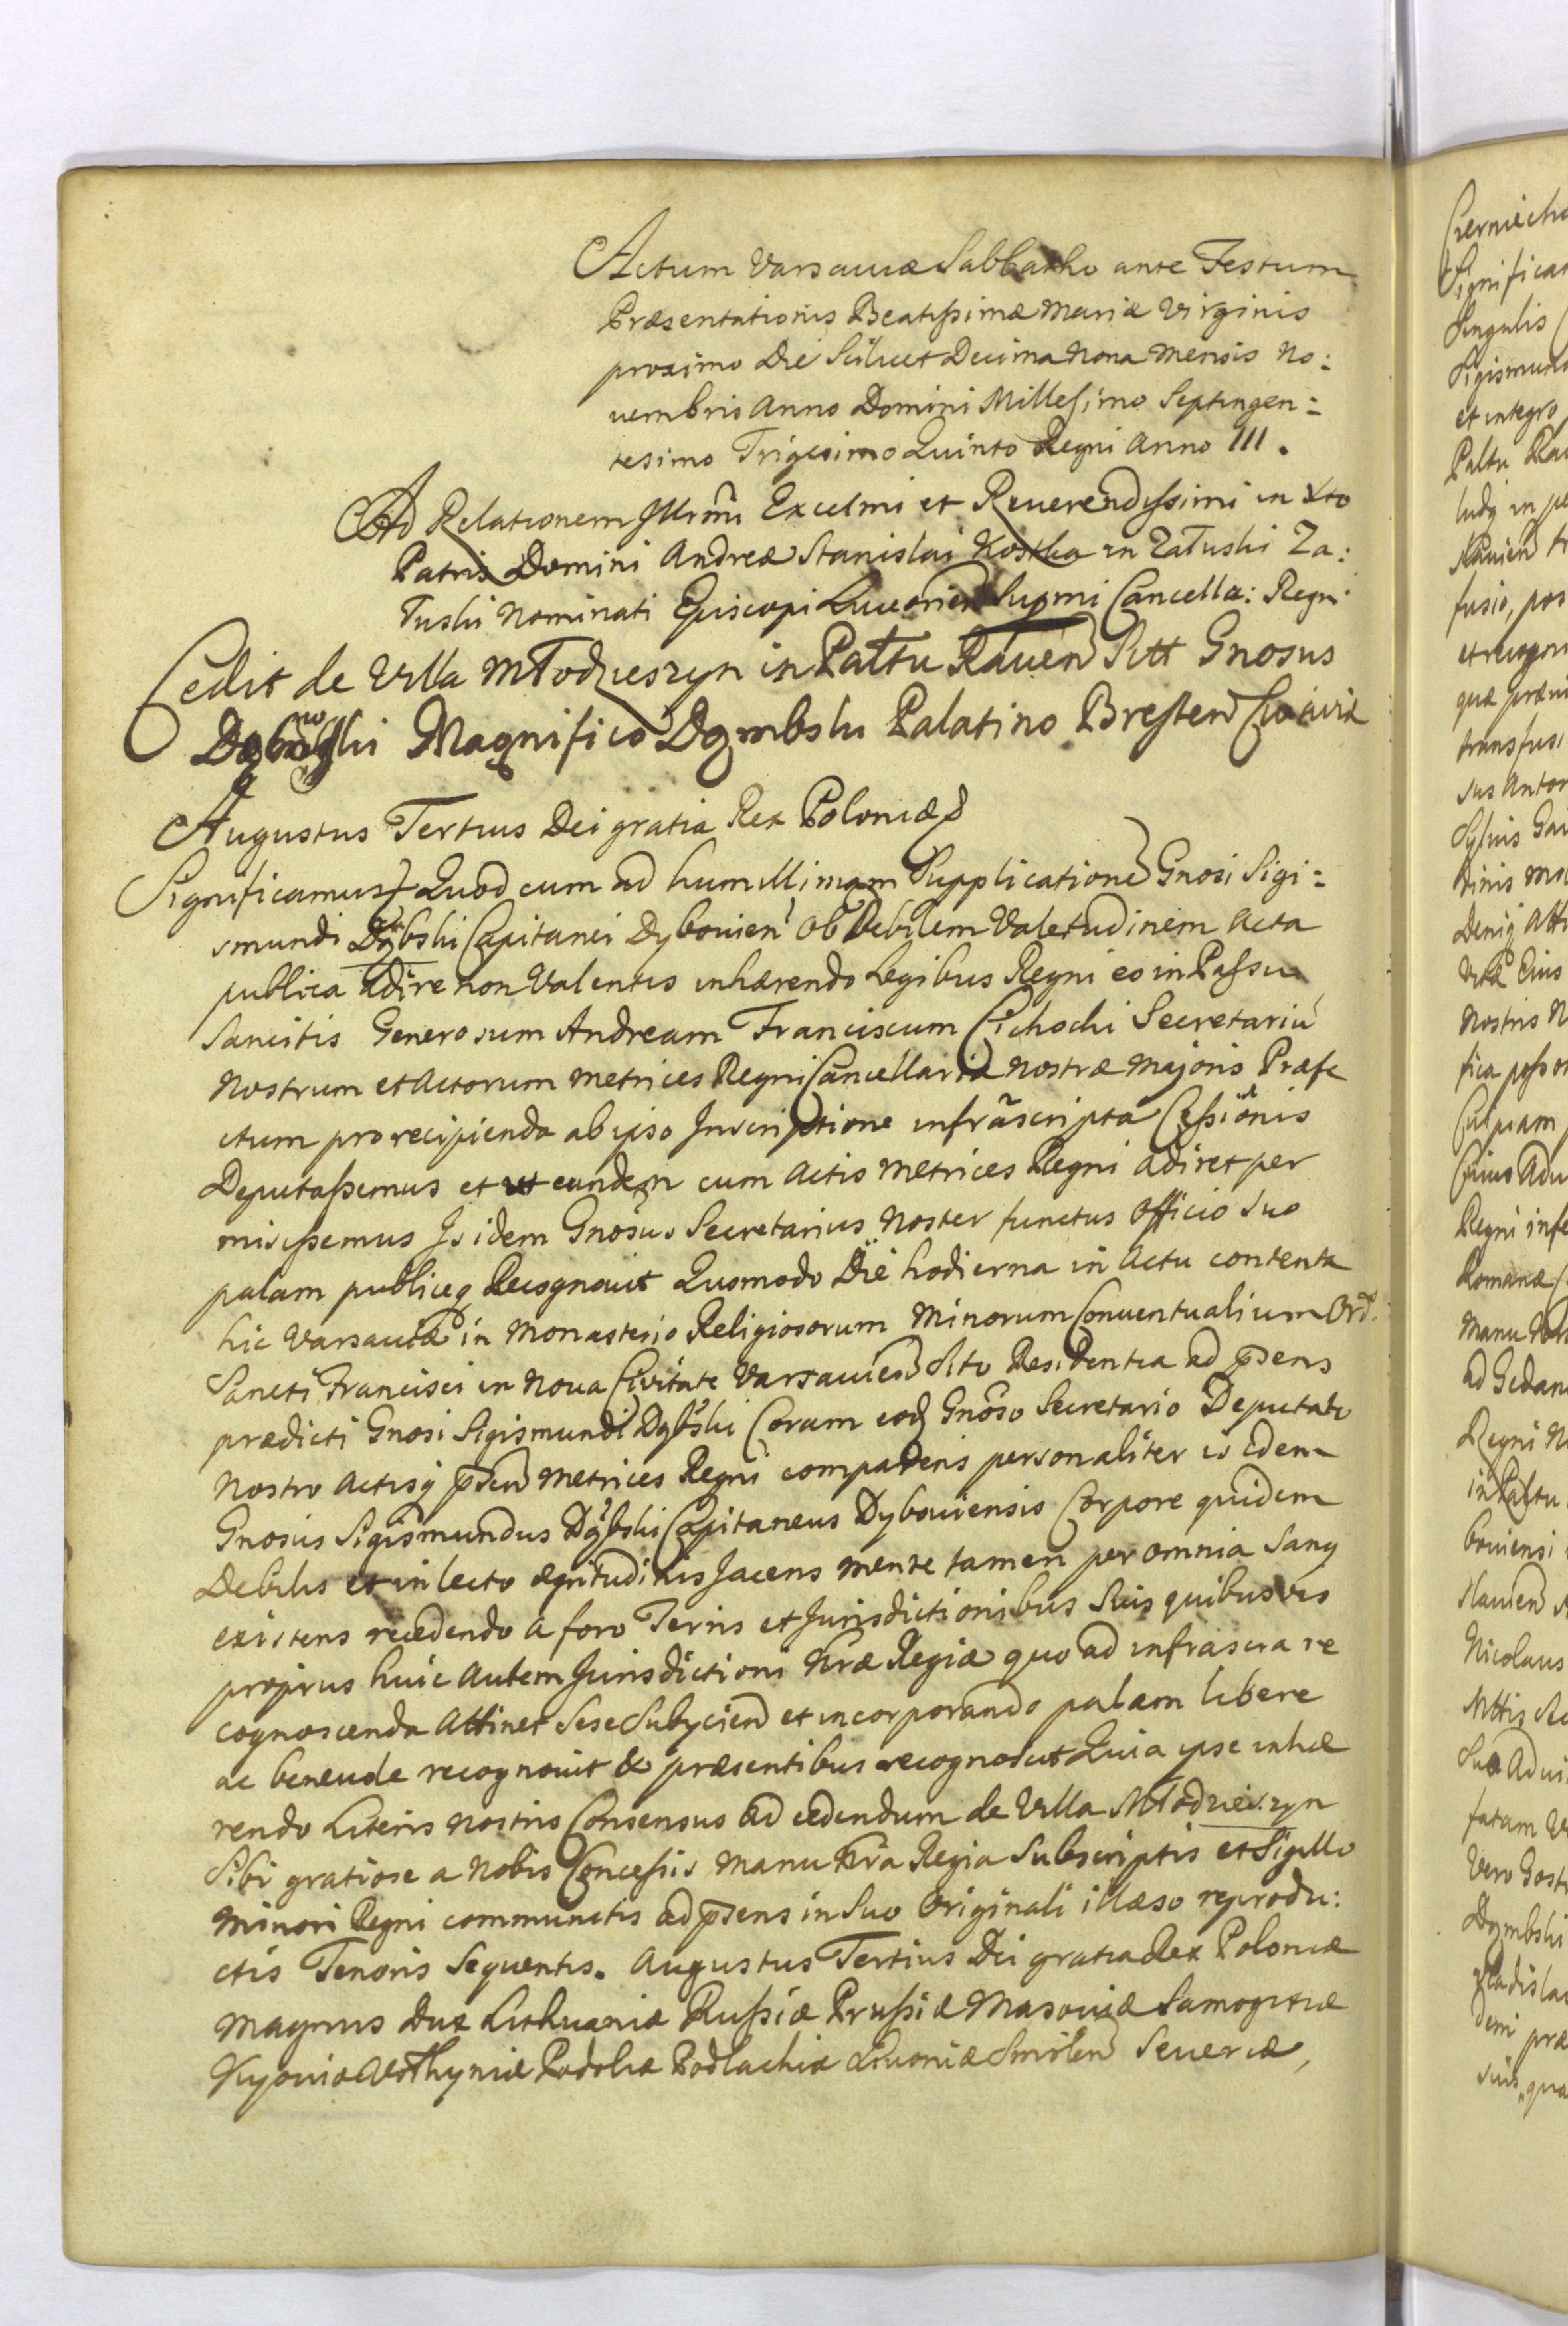 Actum Varsaviæ Sabbatho ante Festum
Præsentationis Beatissimæ Mariæ Virginis
proximo Die Scilicet Decima Nona Mensis No:
uembris Anno Domini Millesimo Septingen:
tesimo Trigesimo Quinto Regni Anno III.
Ad Relationem Illrmi Excelmi et Reuerendissimi in Xto
Patris Domini Andreæ Stanislai Kostka in Załuski Za:
łuski Nominati Episcopi Luceorien Supmi Cancella: Regni
Cedit de Villa Młodzieszyn in Palttu Raven Sitt Gnosus
Magnifico Dąmbski Palatino Bresten Cuiaviæ
Augustus Tertius Dei gratia Rex Poloniæ
Significamus Quod cum ad humillimam Supplicatione Gnosi Sigi:
smundi Dąbski Capitanei Dybouien ob Debilem Valetudinem Acta
publica adire non Valentis inhærendo Legibus Regni eo in Passu
Sancitis Generosum Andream Franciscum Cichocki Secretariu
Nostrum et Actorum Metrices Regni Cancellariæ Nostræ Majoris Præfe
ctum pro recipienda ab ipso Inscriptione infrascripta Cessionis
Deputassemus et ut eundem cum Actis Metrices Regni adiret per
misissemus Is idem Gnosus Secretarius Noster functus Officio Suo
palam publiceq Recognouit Quomodo Die hodierna in Actu contenta
hic Varsaviæ in Monasterio Religiosorum Minorum Conuentualium Ord.
Sancti Francisci in Noua Civitate Varsauien Sito Residentia ad psens
prædicti Gnosi Sigismundi Dąbski Coram eod Gnoso Secretario Deputato
Nostro Actisq psen Metrices Regni comparens personaliter is idem
Gnosus Sigismundus Dąbski Capitaneus Dybouiensis Corpore quidem
Debilis et in lecto ægritudinis Jacens mente tamen per omnia Sanq
existens recedendo a foro Terris et Jurisdictionibus Suis quibusvis
proprius huic Autem Jurisdictioni Nræ Regiæ quo ad infrascra re
cognoscenda Attinet Sese Subyciend et incorporando palam libere
ac beneuole recognouit & præsentibus recognoscit Quia ipse inhæ
rendo Literis Nostris Consensus ad cedendum de Villa Młodzieszyn
Sibi gratiose a Nobis Concessis Manu Nra Regia Subscriptis et Sigillo
Minori Regni communitis ad psens in Suo Originali illæso reprodu:
ctis Tenoris Sequentis. Augustus Tertius Dei gratia Rex Poloniæ
Magnus Dux Lithuaniæ Russiæ Prussiæ Masouiæ Samogitiæ
Kyouiæ Volhyniæ Podoliæ Podlachiæ Liuoniæ Smolen Seueriæ,